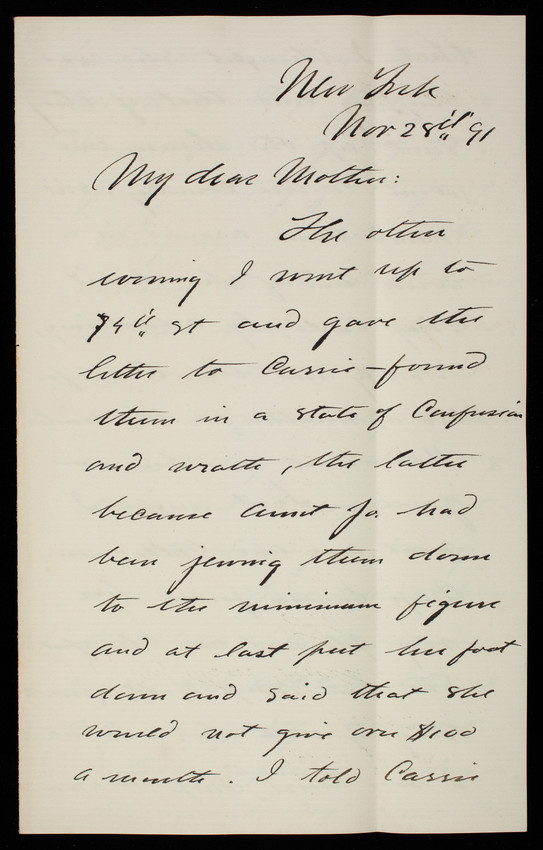 New York
Nov 28th 91
My dear Mother:
The other
evening I went up to
74th st and gave the
letter to Cassie - found
them in a state of Confusion
and wrath, the latter
because Aunt Jo. had
been jewing them down
to the minimum figure
and at last put her foot
down and said that she
would not give over $100
a month. I told Cassie